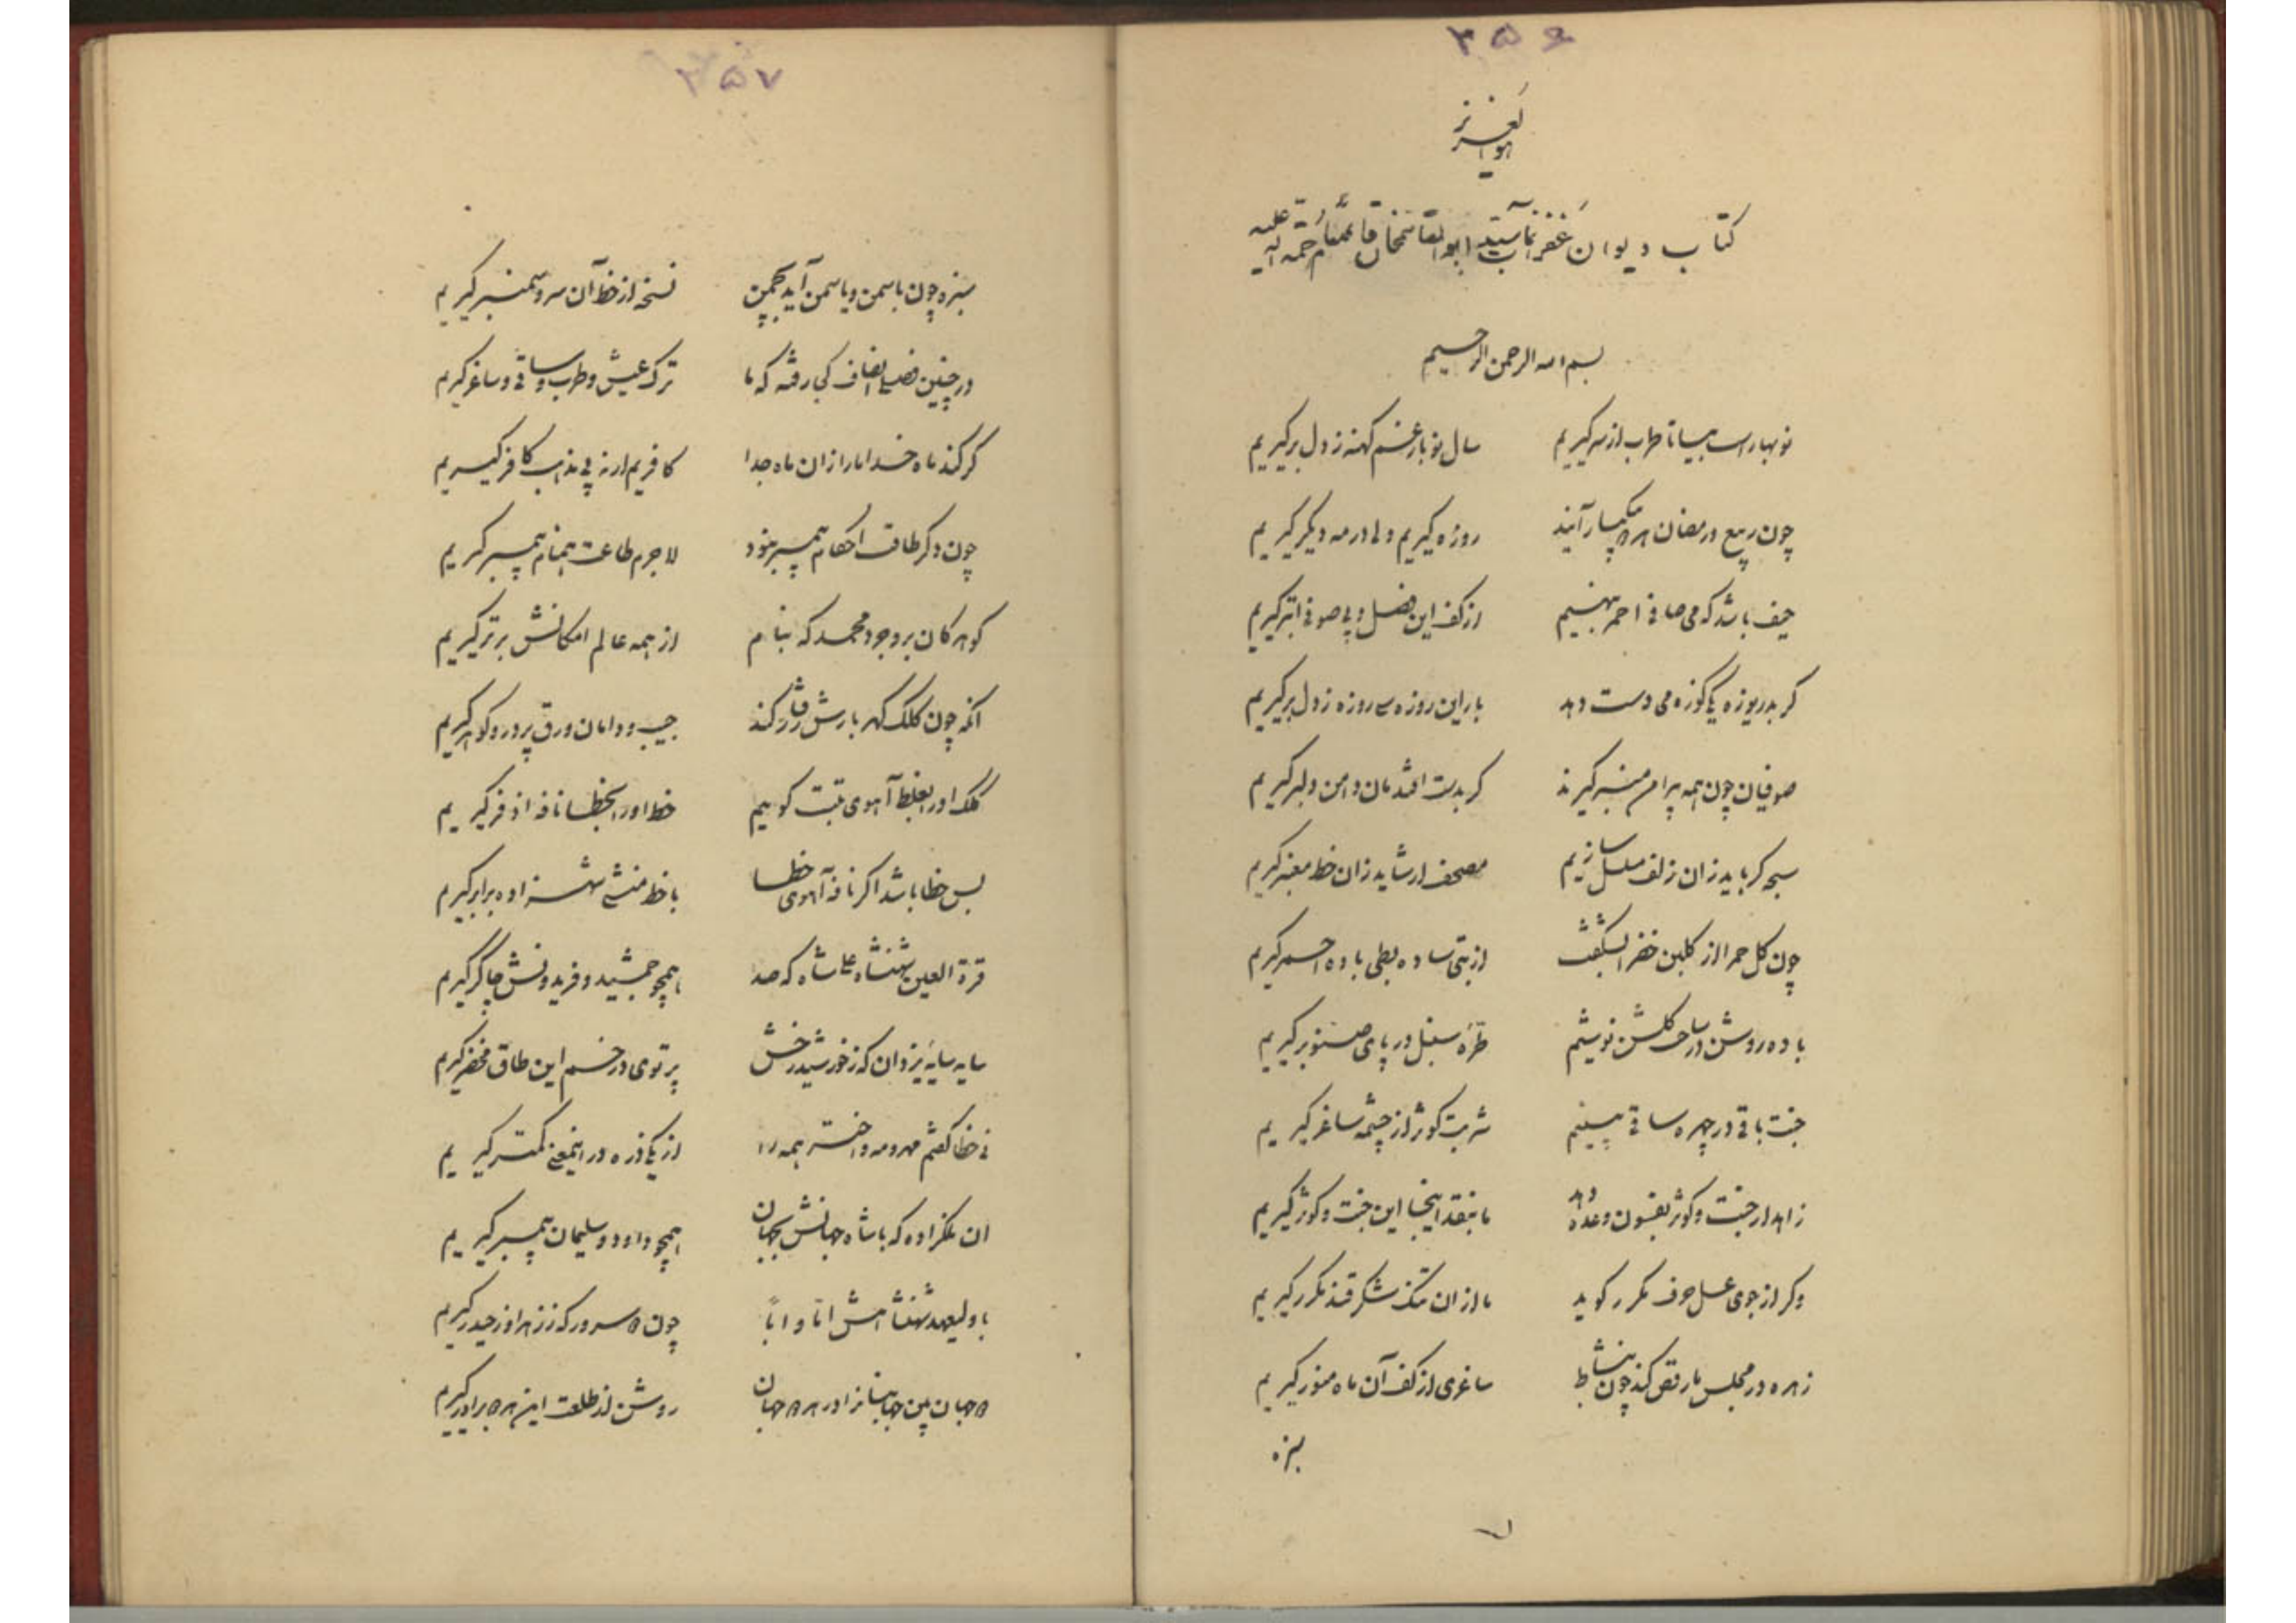 ۳۵۶
هوالعزیز
کتاب دیوان غفرانمآب سید ابوالقاسم قائم‌مقام رحمة الله علیه
بسم الله الرحمن الرحیم
نوبهار است بیا تا طرب از سر گیریم سال نو بار غم کهنه ز دل برگیریم
چون ربیع و رمضان هر ۲ بیکبار آیند روزه گیریم ولی در مه دیگر گیریم
حیف باشد که می صافی احمر بنهیم از کف این فصل و پی صوفی ابتر گیریم
کر بدریوزه یکی کوزه می دست دهد بار این روزه سی روزه ز دل برگیریم
صوفیان چون همه پیرامن منبر گیرند کر بدست افتدمان دامن دلبر گیریم
سبحه کر باید زان زلف مسلسل سازیم مصحف ار شاید زان خط معنبر گیریم
چون کل حمرا از کلبن خضرا بشکفت از بتی ساده بطی باده احمر گیریم
باده روشن در ساحت کلشن نوشیم طره سنبل در پای صنوبر گیریم
جنت باقی در چهره ساقی بینیم شربت کوثر از چشمه ساغر گیریم
زاهد ار جنت و کوثر بفسون وعده دهد ما بنقد اینجا این جنت و کوثر گیریم
وکر از جوی عسل حرف مکرر کوید ما از ان تنک شکر قند مکرر گیریم
زهره در مجلس ما رقص کند چون بنشاط ساغری از کف آن ماه منور گیریم
سبزه
۳۵۷
سبزه چون با سمن و یاسمن آید بچمن نسخه از خط آن سرو سمنبر گیریم
در چنین فصلی انصاف کی رفته که ما ترک عیش و طرب و ساقی و ساغر گیریم
کر کند ماه خدا ما را زان ماه جدا کافریم ار نه پی مذهب کافر گیریم
چون دکر طاقت احکام پیمبر نبود لاجرم طاعت همنام پیمبر گیریم
کوهر کان بر وجود محمد که بنام از همه عالم امکانش برتر گیریم
انکه چون کلک کهربارش رفتار کند جیب و دامان ورق پر در و کوهر گیریم
کلک او را بغلط آهوی تبت کوییم خط او را بخطا نافه اذفر گیریم
بس خطا باشد اکر نافه آهوی خطا با خط منشی شهزاده برابر گیریم
قرة العین شهنشاه علی شاه که صد همچو جمشید و فریدونش چاکر گیریم
سایه سایه یزدان که ز خورشید رخش پرتوی در خم این طاق مخضر گیریم
نی خطا گفتم مهر و مه و اختر همه را از یکی ذره در اینمعنی کمتر گیریم
ان ملکزاده که با شاه جهانش بجهان همچو داود و سلیمان پیمبر گیریم
با ولیعهد شهنشاهش اما و ابا چون ۲ سرور که ز زهرا و ز حیدر گیریم
۲ جهان بین جهانبانرا در هر ۲ جهان روشن از طلعت این هر ۲ برادر گیریم